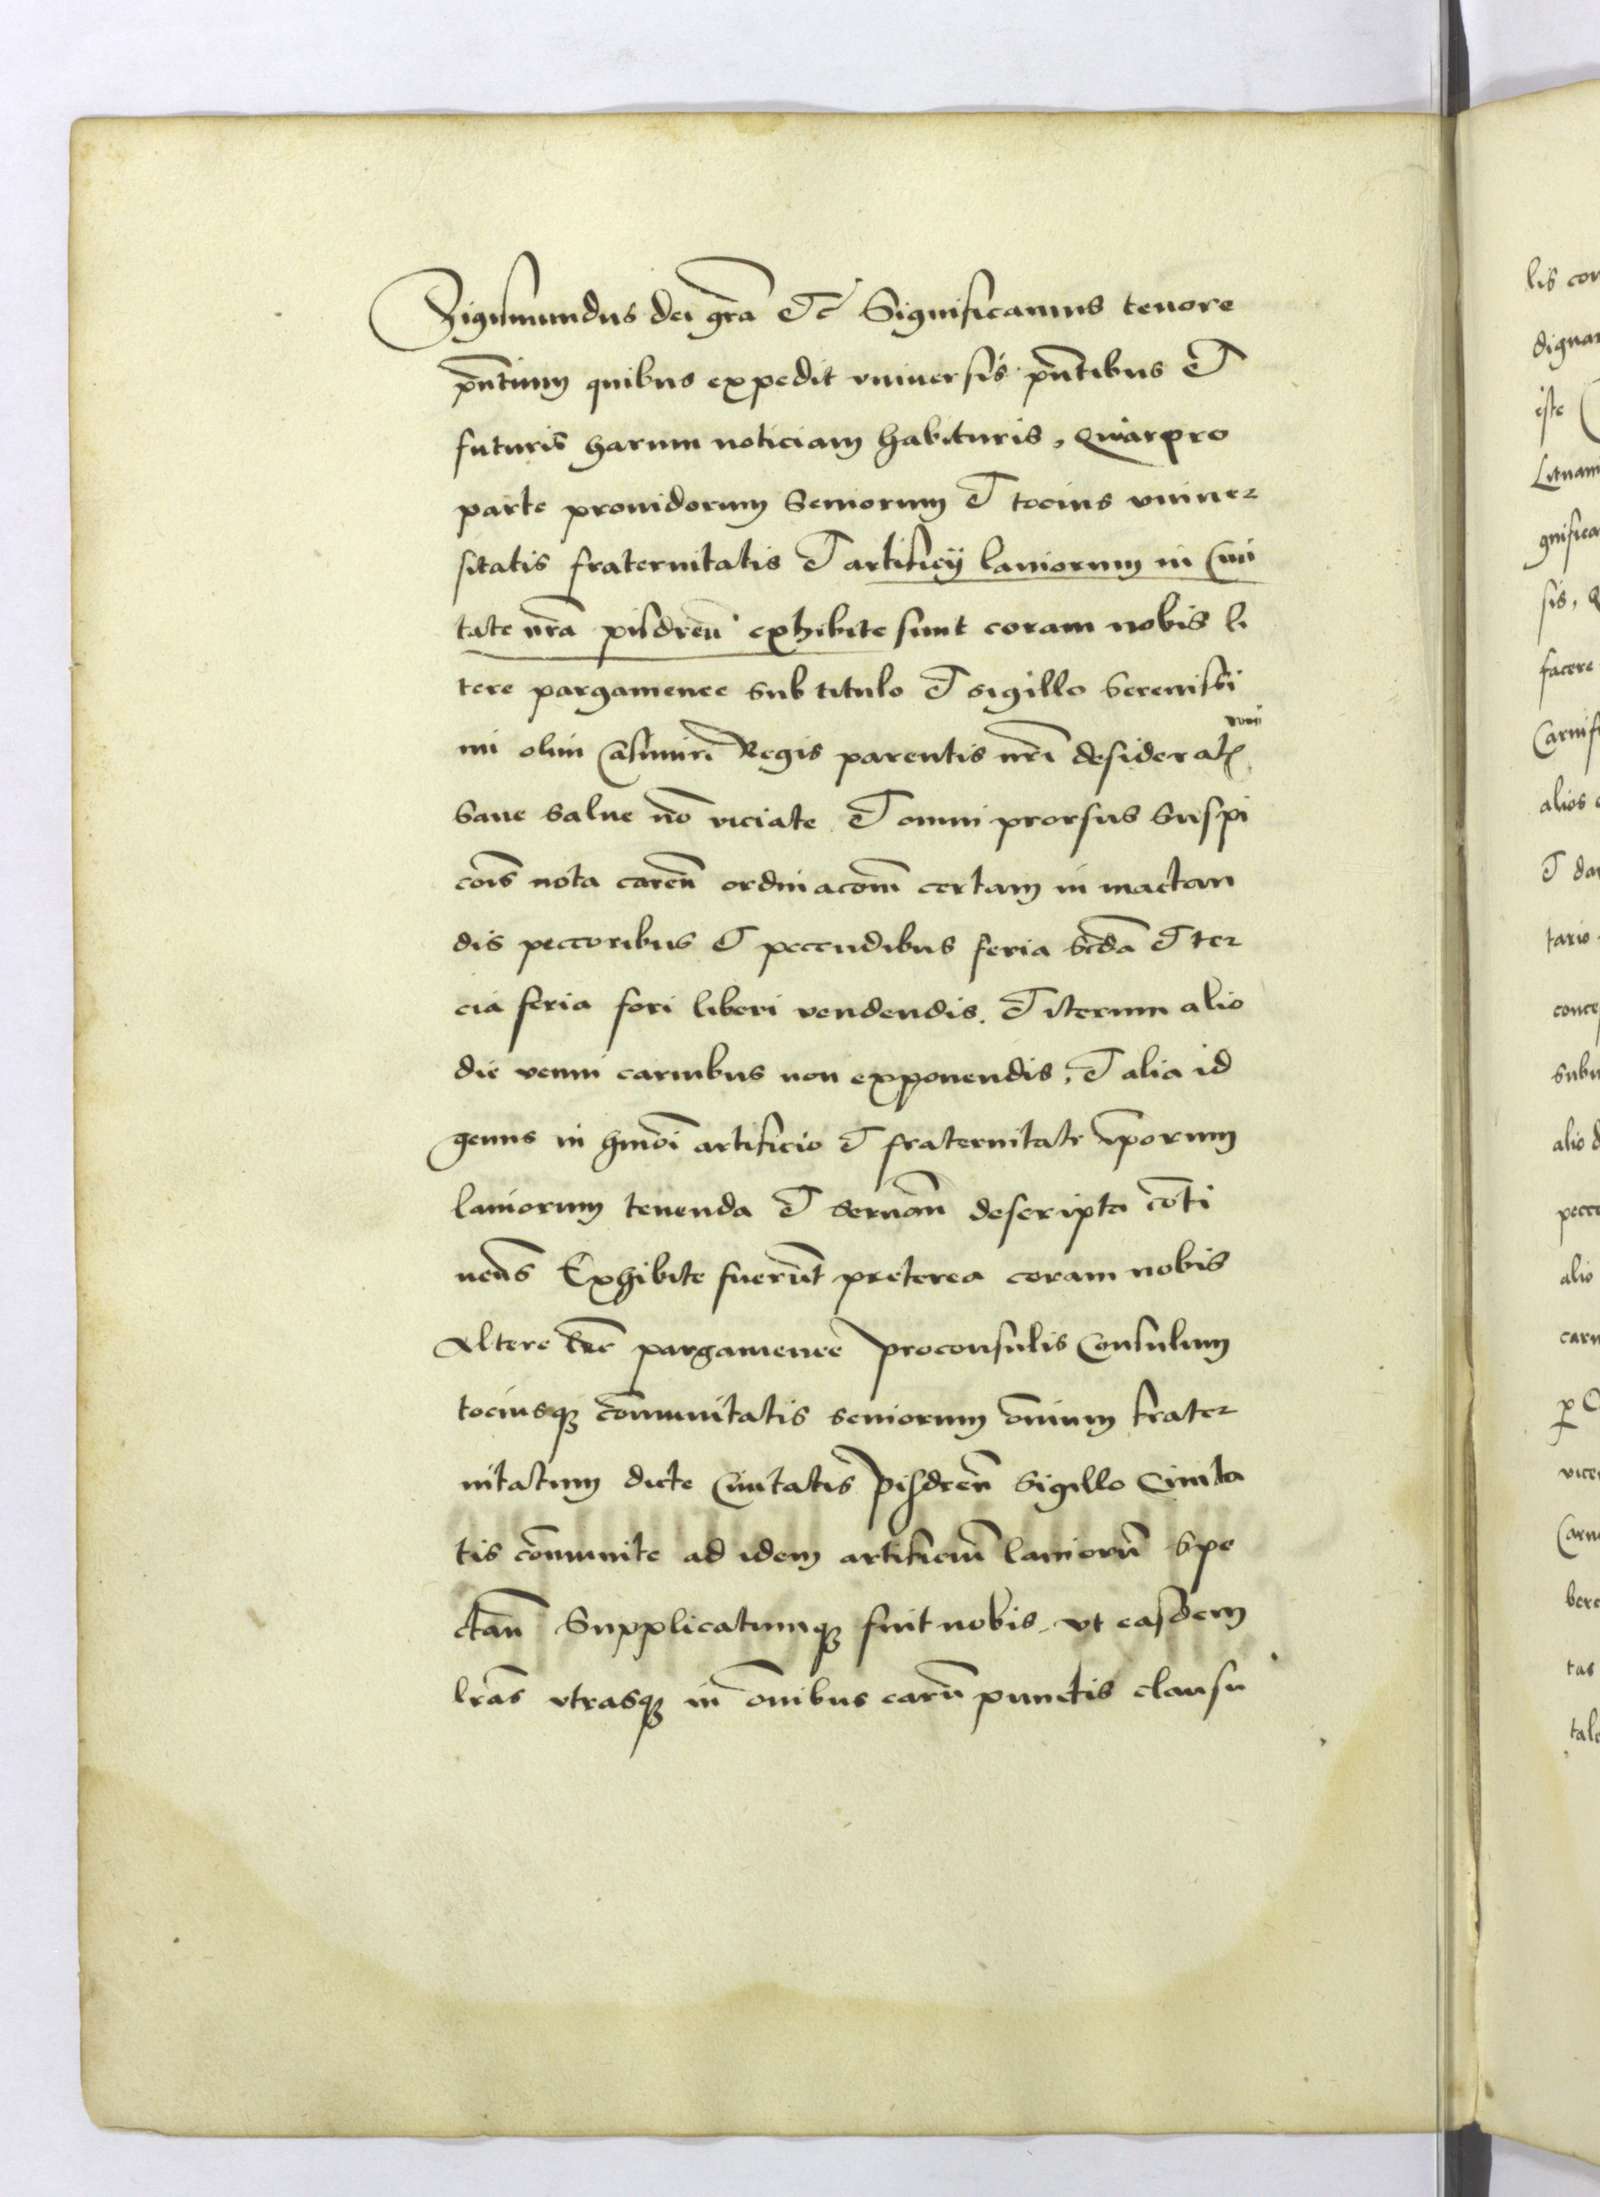 Sigismundus dei gra̅ Etc Significamus tenore
pn̅tium quibus expedit vniuersis pn̅tibus Et
futuris harum noticiam habituris, Quia pro
parte prouidorum Seniorum Et tocius vniuer
sitatis fraternitatis Et artificij laniorum in Ciui
tate nr̅a pisdren̅ exhibite sunt coram nobis li
tere pargamenee sub titulo Et sigillo Serenissi
mi olim Casimiri Regis parentis nr̅i desideratissimi
Sane salue no̅ viciate Et omni prorsus Suspi
co̅is nota caren̅ ordinaco̅m certam in mactan
dis peccoribus Et peccudibus feria sc̅da Et ter
cia feria fori liberi vendendis. Et iterum alio
die venui carnibus non exponendis, Et alia id
genus in hmo̅i artificio Et fraternitate ip̅orum
laniorum tenenda Et seruan̅ descripta co̅ti
nen̅s Exhibite fueru̅t preterea coram nobis
Altere lr̅e pargamenee proconsulis Consulum
tociusq3 co̅munitatis seniorum om̅nium frater
nitatum dicte Ciuitatis pisdren̅ Sigillo Ciuita
tis co̅munite ad idem artificiu̅ lanioru̅ Spe
ctan̅ Supplicatumq3 fuit nobis vt easdem
lr̅as vtrasq3 in om̅nibus earu̅ punctis clausu
lis con
dignar
iste
Lituani
gnifica
sis, Q
facere
Carnifi
alios
Et da
tario
conce
subu
alio d
pecco
alio
carn
vice
Carn
bere
tas
tal